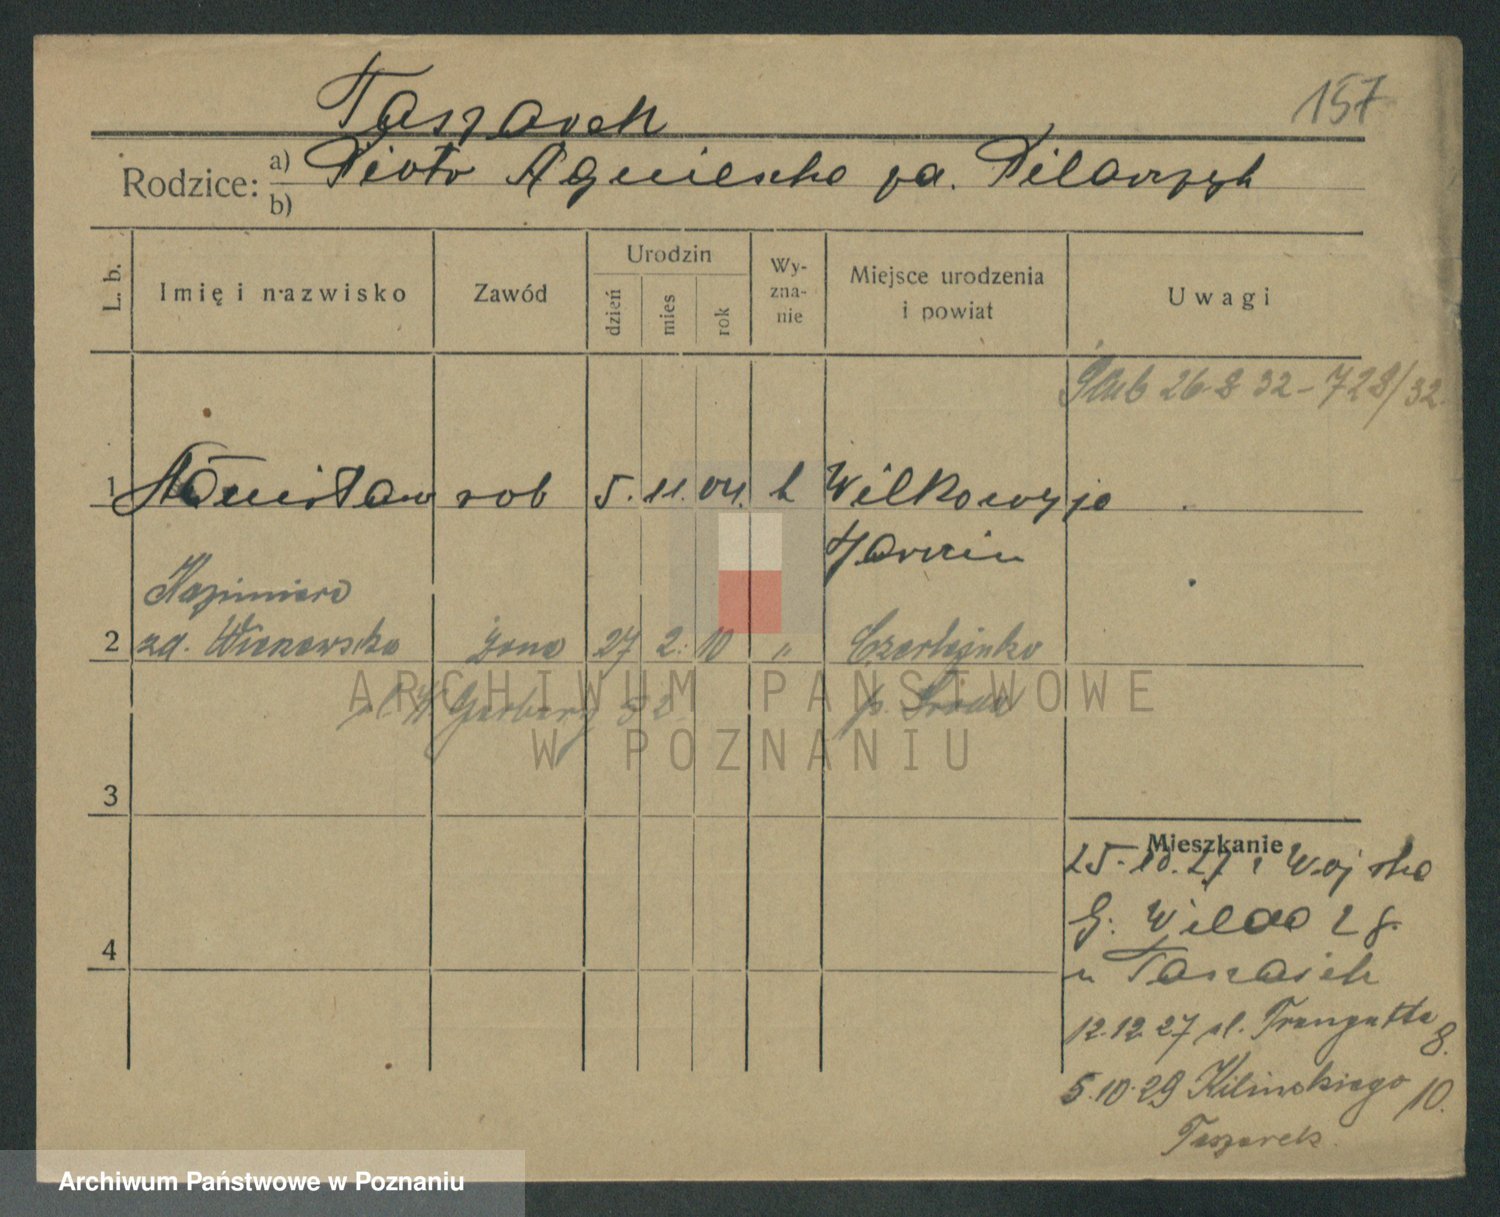 157
Taszarek
Rodzice: a) Piotr Agnieszka za. Pilarczyk
b)
L. b.
Imię i nazwisko
Zawód
Urodzin
dzień
mies
rok
Wy-
zna-
nie
Miejsce urodzenia
i powiat
Uwagi
Ślub 26 8 32 - 728/32.
1 Stanisław rob 5. 11. 04. k Wilkowyja
Jarocin
Kazimiera
2 zd. żona 27 2. 10 " 
ul. W Garbary 52
p. Środa
3
4
Mieszkanie
25.10.27 z Wojska
G. Wilda 28.
u Taszarek
12.12.27 ul. Traugutta 8.
5.10.29 Kilińskiego 10.
Taszarek.
ARCHIWUM PAŃSTWOWE
W POZNANIU
Archiwum Państwowe w Poznaniu